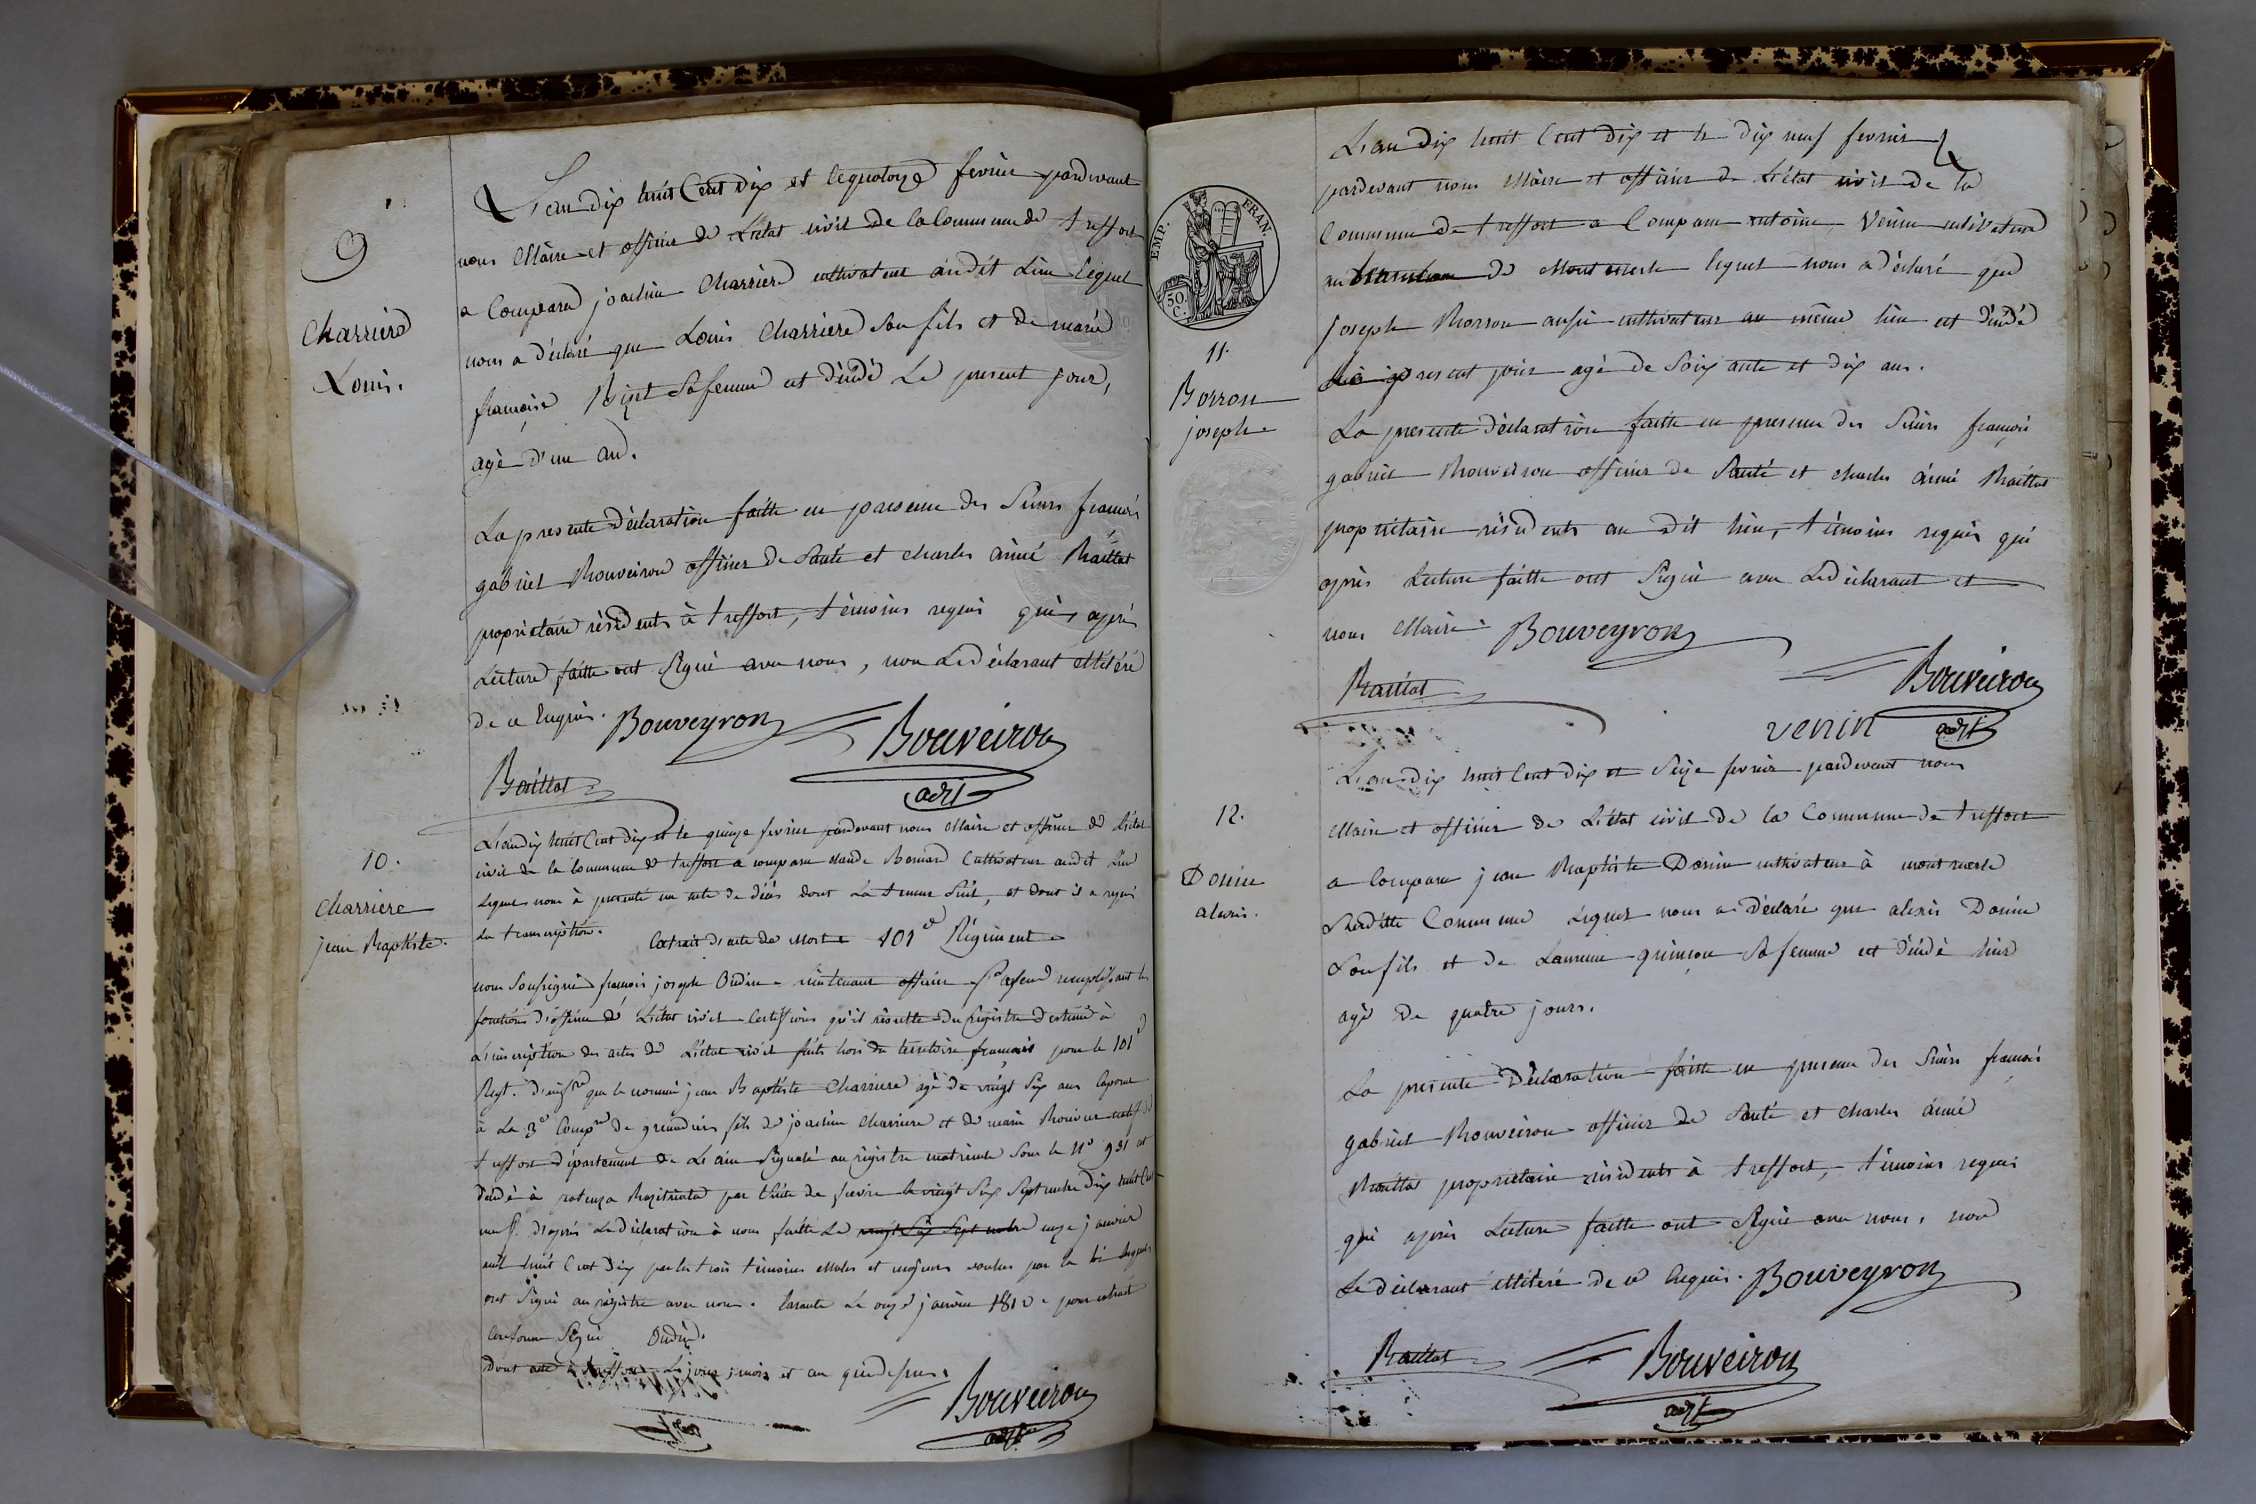 9
Charriere
Louis.
L'an dix huit Cent dix et le quatorze fevrier pardevant
nous Maire et officier de L'état civil de la Commune de treffort
a Comparu joachim Charriere cultivateur audit Lieu Lequel
nous a déclaré que Louis Charriere Son fils et de marie
françoise Sa femme est décédé Le present jour,
agé d'un an.
La presente déclaration faitte en presence des Sieurs françois
gabriel Bouveiron officier de Santé et charles aimé Baillat
propriétaire résidents à treffort, témoins requis qui, après
Lecture faitte ont Signé avec nous, non Le déclarant illiteré
de ce Enquis. Bouveyron
Bouveiron
Baillat
adjt
10.
Charriere
jean Baptiste.
L'an dix huit Cent dix et le quinze fevrier pardevant nous Maire et officier de L'état
civil de la Commune de treffort a comparu claude Bernard Cultivateur audit Lieu
Lequel nous à presenté un acte de décès dont La teneur Suit, et dont il a requis
La transcription. Extrait d'acte de Mort 101e Régiment
nous Soussigné françois joseph Oudin Lieutenant officier remplissant les
fonctions d'officier de L'état civil Certifions qu'il résulte du Registre destiné à
L'inscription des actes de L'état civil faits hors du territoire français pour le 101e
Regt. que le nommé jean Baptiste Charriere agé de vingt Six ans Caporal
à La 3e Compie de grenadiers fils de joachim Charriere et de marie natif de
treffort département de L'ain Signalé au registre matricule Sous le N° 931 est
décédé à potenza par Suite de fievre le vingt Six Septembre dix huit Cent
neuf. d'après La déclaration à nous faitte Le vingt Six Septembre onze janvier
mil huit Cent dix par les trois témoins Males et majeurs voulus par la loi Lesquels
ont Signé au régistre avec nous. Le onze janvier 1810 pour extrait
Conforme Signé Oudin.
Dont acte à treffort Les jour, mois et an que dessus.
Bouveiron
adjt
EMP. FRAN.
50. C.
11.
Borron
joseph
L'an dix huit Cent dix et le dix neuf fevrier
pardevant nous Maire et officier de L'état civil de la
Commune de treffort a Comparu antoine Venin cultivateur
au de Montmerle lequel nous a déclaré que
joseph Borron aussi cultivateur au même lieu est décédé
Le present jour agé de Soixante et dix ans.
La presente déclaration faitte en presence des Sieurs françois
gabriel Bouveiron officier de Santé et charles aimé Baillat
propriétaire résidents au dit lieu, témoins requis qui
après Lecture faitte ont Signé avec Le déclarant et
nous Maire. Bouveyron
Baillat
Bouveiron
venin
adjt
12.
Donin
alexis.
L'an dix huit Cent dix et Seize fevrier pardevant nous
Maire et officier de L'état civil de la Commune de treffort
a Comparu jean Baptiste Donin cultivateur à montmerle
Susditte Commune Lequel nous a déclaré que alexis Donin
Son fils et de Laurence Sa femme est décédé hier
agé de quatre jours.
La presente Déclaration faitte en presence des Sieurs françois
gabriel Bouveiron officier de Santé et charles aimé
Baillat propriétaire résidents à treffort, témoins requis
qui après Lecture faitte ont Signé avec nous, non
Le déclarant illiteré de ce Enquis. Bouveyron
Baillat
Bouveiron
adjt